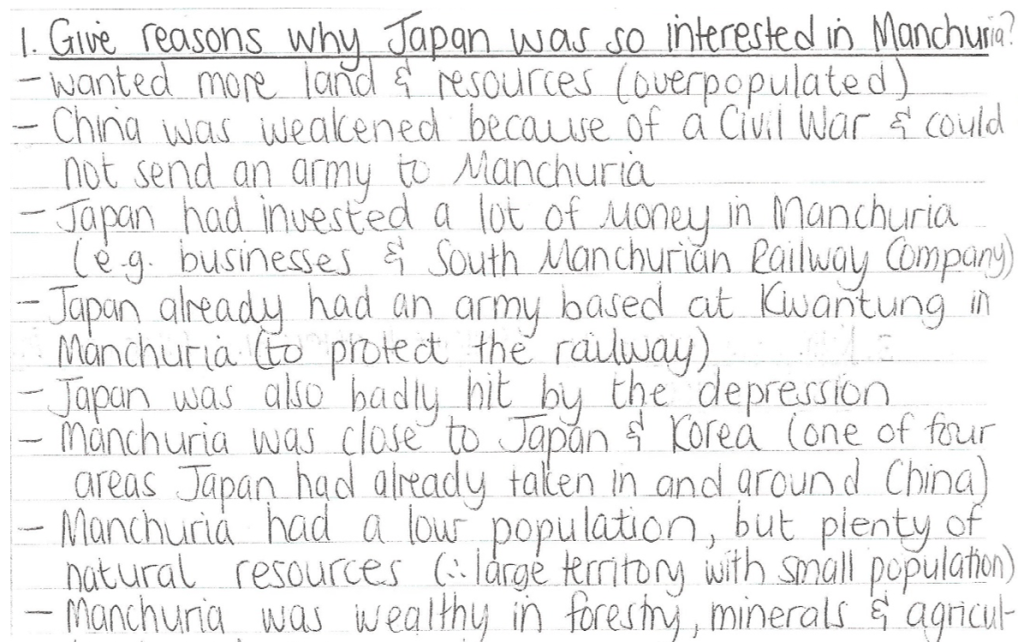 1. Give reasons why Japan was so interested in Manchuria?
- wanted more land & resources (overpopulated)
- China was weakened because of a Civil War & could
not send an army to Manchuria
- Japan had invested a lot of money in Manchuria
(e.g. businesses & South Manchurian Railway Company)
- Japan already had an army based at Kwantung in
Manchuria (to protect the railway)
- Japan was also badly hit by the depression
- Manchuria was close to Japan & Korea (one of four
areas Japan had already taken in and around China)
- Manchuria had a low population, but plenty of
natural resources (∴ large territory with small population)
- Manchuria was wealthy in forestry, minerals & agricul-